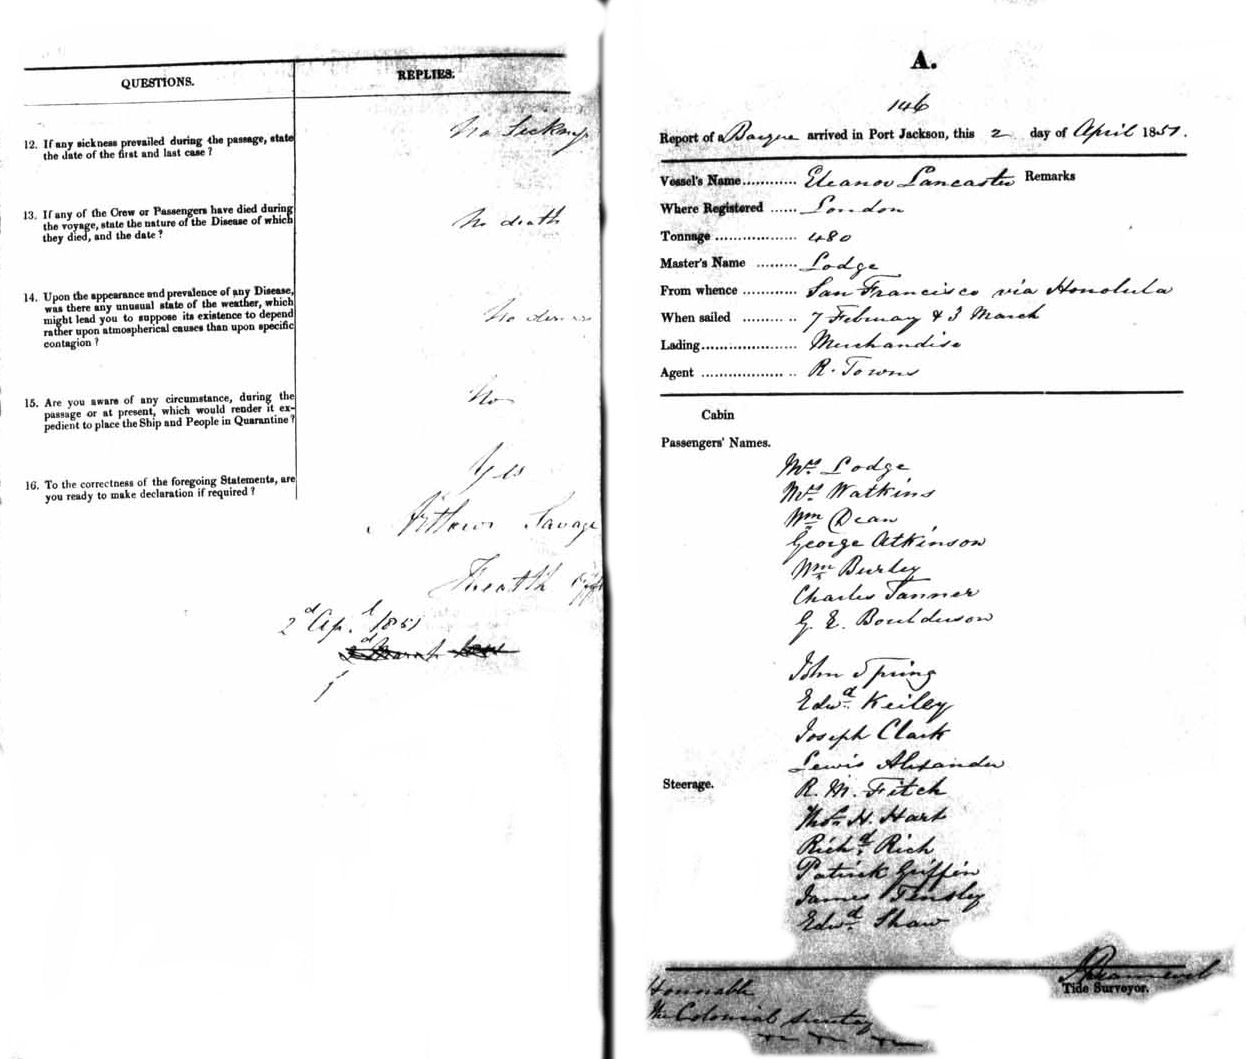 QUESTIONS.
REPLIES.
12. If any sickness prevailed during the passage, state
the date of the first and last case ?
No Sickness
13. If any of the Crew or Passengers have died during
the voyage, state the nature of the Disease of which
they died, and the date ?
No death
14. Upon the appearance and prevalence of any Disease,
was there any unusual state of the weather, which
might lead you to suppose its existence to depend
rather upon atmospherical causes than upon specific
contagion ?
No
15. Are you aware of any circumstance, during the
passage or at present, which would render it ex-
pedient to place the Ship and People in Quarantine ?
No
16. To the correctness of the foregoing Statements, are
you ready to make declaration if required ?
Yes
Savage
Health
2d Apl. 1851
A.
146
Report of a Barque arrived in Port Jackson, this 2 day of April 1851.
Vessel's Name ............ Eleanor Lancaster Remarks
Where Registered ...... London
Tonnage .................. 480
Master's Name ......... Lodge
From whence ............ San Francisco via Honolulu
When sailed ............ 7 February & 3 March
Lading ...................... Merchandise
Agent ..................... R. Towns
Cabin
Passengers' Names.
Mrs. Lodge
Mrs. Watkins
Wm Dean
George Atkinson
Wm Burley
Charles Tanner
G. E. Boulderson
John Spring
Edwd. Keiley
Joseph Clark
Lewis Alexander
Steerage.
R. M. Fitch
Thos H. Hart
Richd. Rich
Patrick Griffin
James Tinsley
Edwd. Shaw
Tide Surveyor.
Honorable
The Colonial Secretary